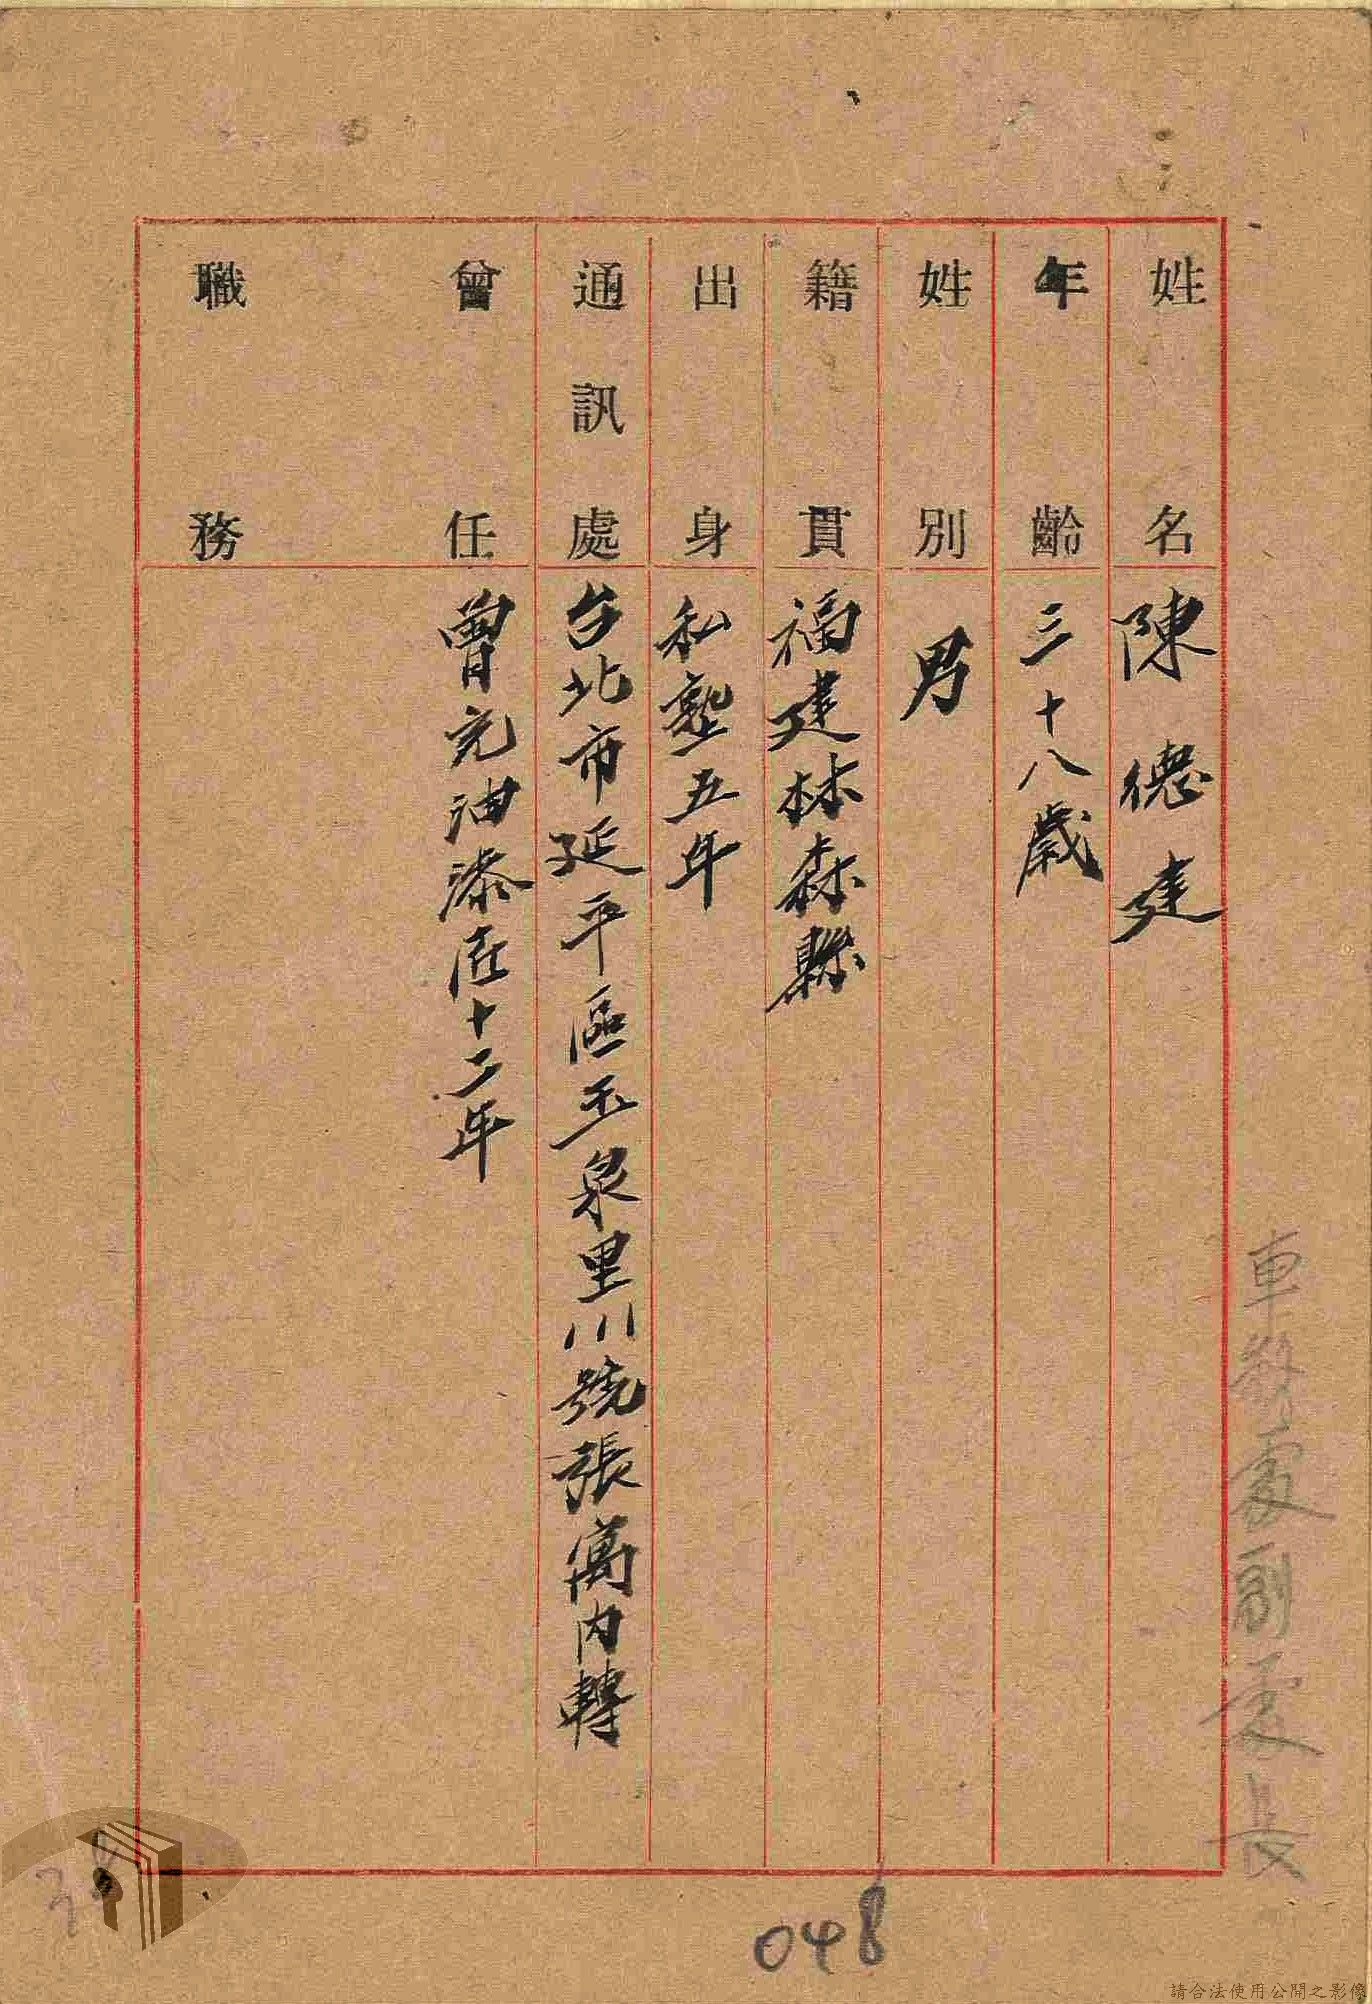 車務處副處長
姓名 陳德建
年齡 三十八歲
姓別 男
籍貫 福建林森縣
出身 私塾五年
通訊處 台北市延平區玉泉里川號張萬內轉
曾任 曾充油漆匠十二年
職務
048
請合法使用公開之影像